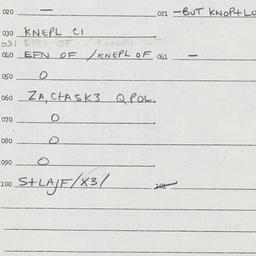 020 — 021 —BUT KNOP+LO
030 KNEPL CI
031 EFN OF
040 EFN OF /KNEPL OF 041 —
050 O
060 ZA, C+ASK3 Q POL.
070 O
080 O
090 O
100 S+LAJF/X3/ 101